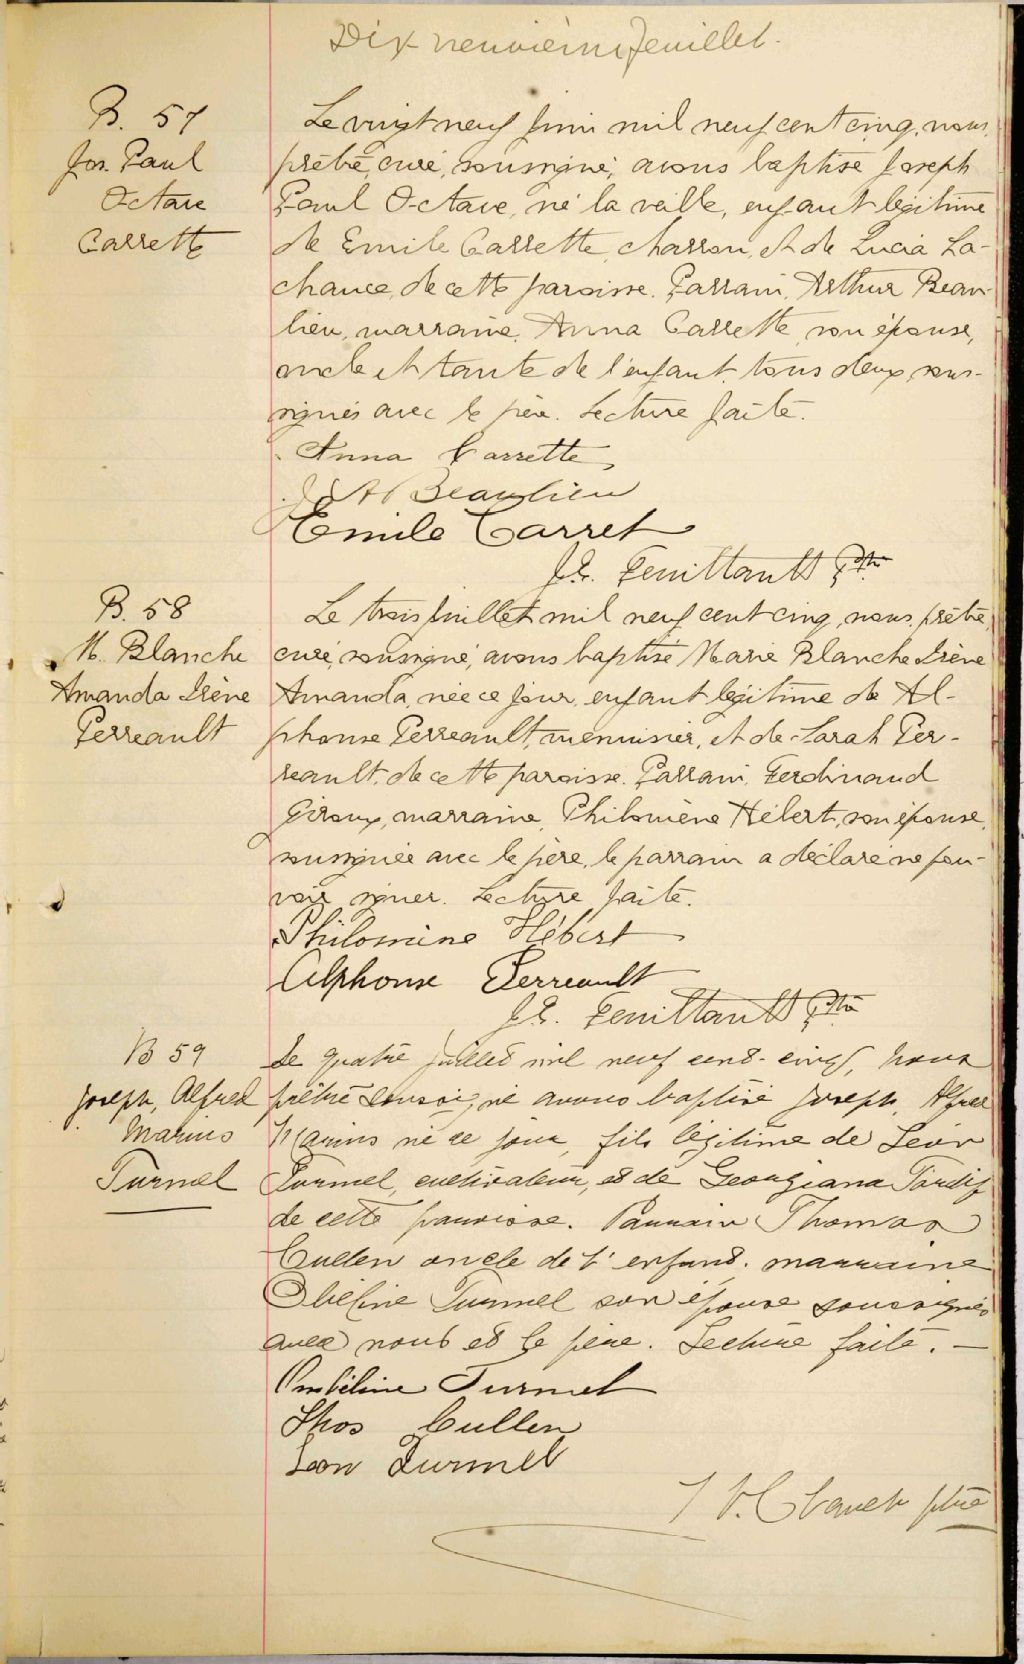 Dix neuvième feuillet.
B. 57
Jos. Paul
Octave
Carrette
Le vingt neuf juin mil neuf cent cinq, nous,
prêtre, curé, soussigné, avons baptisé Joseph
Paul Octave, né la veille, enfant légitime
de Emile Carrette, charron, et de Lucia La-
chance, de cette paroisse. Parrain, Arthur Beau-
lieu, marraine, Anna Carrette, son épouse,
oncle et tante de l'enfant, tous deux sous-
signés avec le père. Lecture faite.
Anna Carrette
J A Beaulieu
Emile Carret
J. E. Feuiltault Ptre
B. 58
M. Blanche
Amanda Irène
Perreault
Le trois juillet mil neuf cent cinq, nous, prêtre,
curé, soussigné, avons baptisé Marie Blanche Irène
Amanda, née ce jour, enfant légitime de Al-
phonse Perreault, menuisier, et de Sarah Per-
reault, de cette paroisse. Parrain, Ferdinand
Giroux, marraine, Philomène Hébert, son épouse,
soussignée avec le père, le parrain a déclaré ne pou-
voir signer. Lecture faite.
Philomène Hébert
Alphonse Perreault
J. E. Feuiltault Ptre
B 59
Joseph, Alfred
Marius
Turmel
Le quatre juillet mil neuf cent-cinq, nous
prêtre soussigné avons baptisé Joseph, Alfred
Marius né ce jour, fils légitime de Léon
Turmel, cultivateur, et de Georgiana Tardif
de cette parroisse. Parrain Thomas
Cullen oncle de l'enfant. marraine
Obéline Turmel son épouse soussignés
avec nous et le père. Lecture faite. —
Ombéline Turmel
Thos Cullen
Léon Turmel
ptre